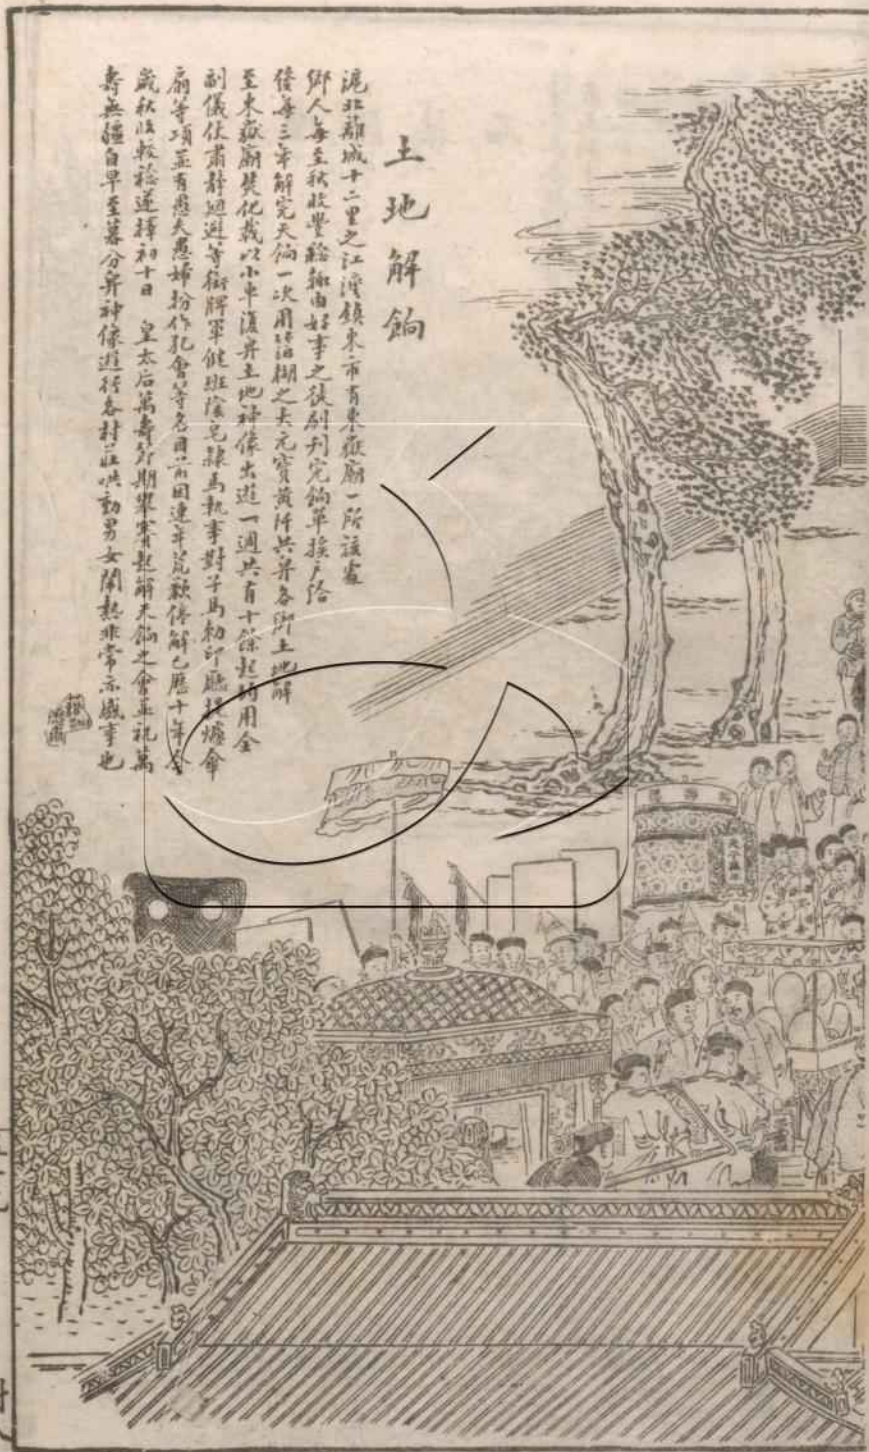 土地解餉
滬北離城十二里之江灣鎮東市有東嶽廟一所該處
鄉人每至秋收豐稔輒由好事之徒刷刊完餉單挨戶給
發每三年解完天餉一次用箔糊之大元寶黃阡共舁各鄉土地解
至東嶽廟焚化載以小車復舁土地神像出遊一週共有十餘起均用全
副儀仗肅靜迴避等銜牌軍健班陰皂隸馬執事對子馬勅印廳提爐傘
扇等項並有愚夫愚婦扮作犯會等名目前因連年荒歉停解已歷十年今
歲秋收較稔遂擇初十日 皇太后萬壽節期舉賽起解天餉之會並祝萬
壽無疆自早至暮分舁神像遊行各村莊哄動男女鬧熱非常亦盛事也